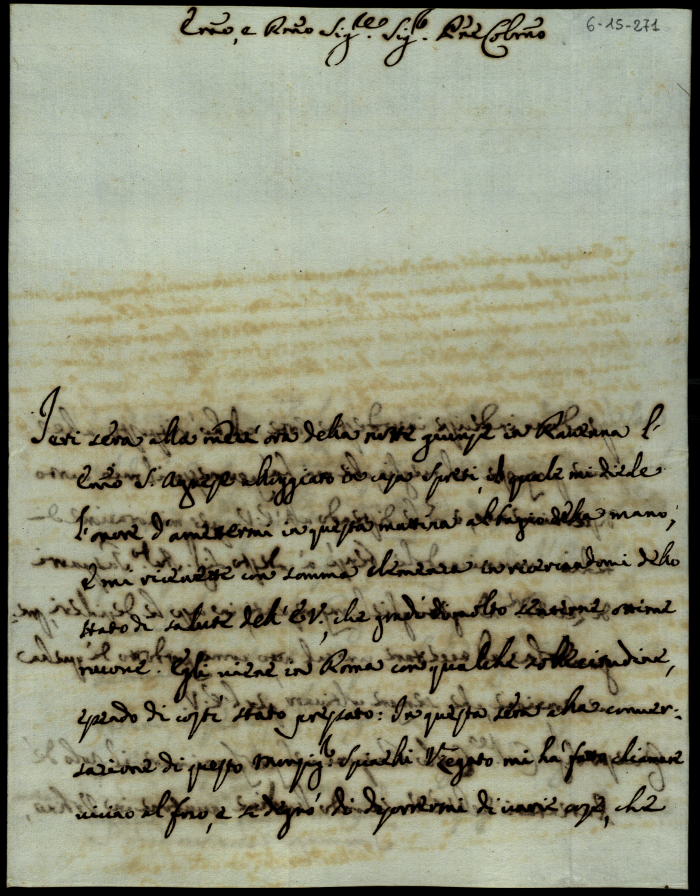 6-15-271
Emo, e Rmo Sig.re Sig.r Pne Colmo
Ieri sera alla mezz' ora della notte giunse in Ravenna l'
Emo S. Agnese alloggiato in casa Spreti, il quale mi diede
l'onore d'amettermi in questa mattina al bagio della mano,
e mi ricevette con somma clemenza in ricercandomi dello
stato di salute dell' E V, che godè di molto sentirne ottime
nuove. Egli viene in Roma con qualche sollecitudine,
essendo di costì stato pressato: In questa sera alla conver-
sazione di questo Monsig.r Vicelegato mi hà fatto chiamare
vicino al foco, e si degnò di discorrermi di varie cose, che